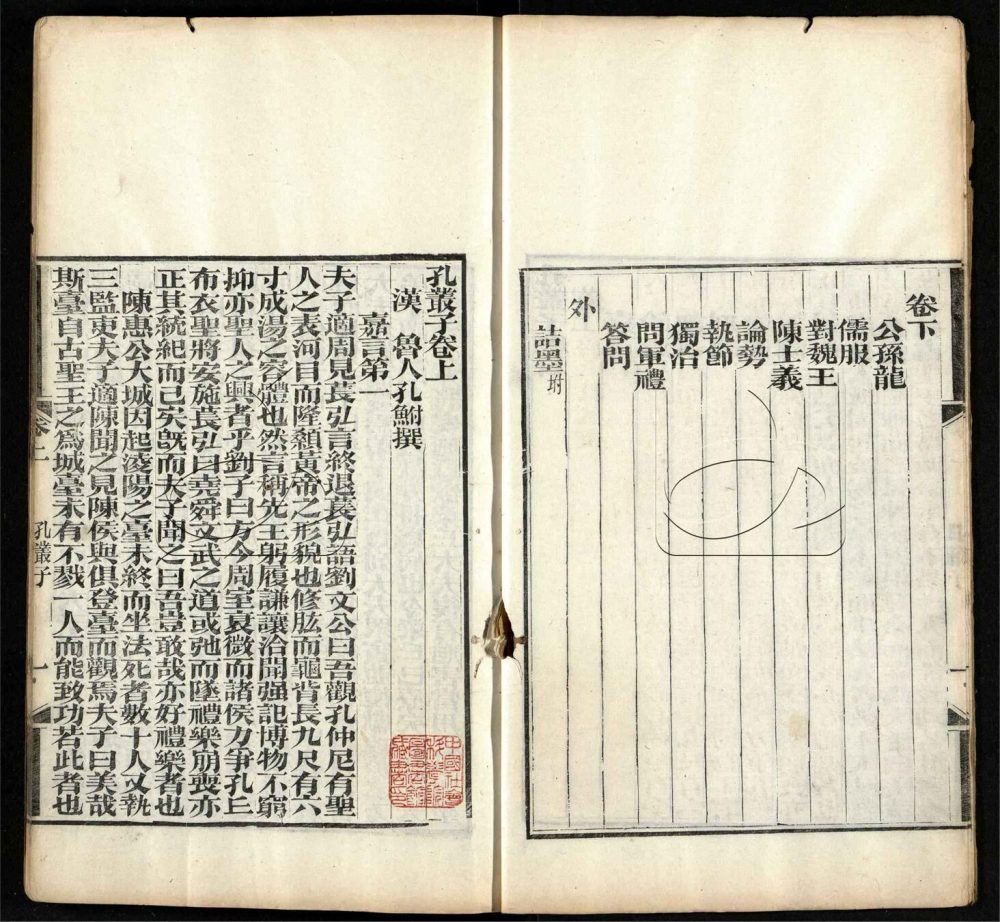 卷下
公孫龍
儒服
對魏王
陳士義
論勢
執節
獨治
問軍禮
答問
外
詰墨坿
孔叢子卷上
漢 魯人孔鮒撰
嘉言第一
夫子適周見萇弘言終退萇弘語劉文公曰吾觀孔仲尼有聖
人之表河目而隆顙黃帝之形貌也修肱而龜背長九尺有六
寸成湯之容體也然言稱先王躬履謙讓洽聞强記博物不窮
抑亦聖人之興者乎劉子曰方今周室衰微而諸侯力爭孔丘
布衣聖將安施萇弘曰堯舜文武之道或弛而墜禮樂崩喪亦
正其統紀而已矣旣而夫子聞之曰吾豈敢哉亦好禮樂者也
陳惠公大城因起淩陽之臺未終而坐法死者數十人又執
三監吏夫子適陳聞之見陳侯與俱登臺而觀焉夫子曰美哉
斯臺自古聖王之爲城臺未有不戮一人而能致功若此者也
孔叢子
一